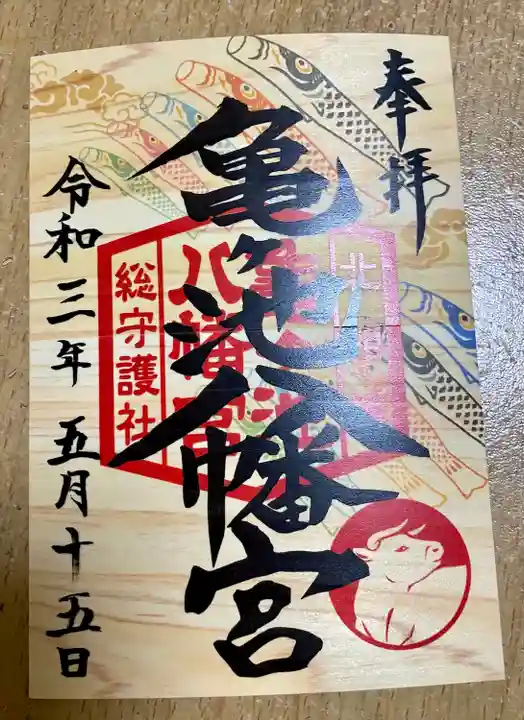 奉拝
亀ヶ池八幡宮
八幡宮
総守護社
令和三年五月十五日